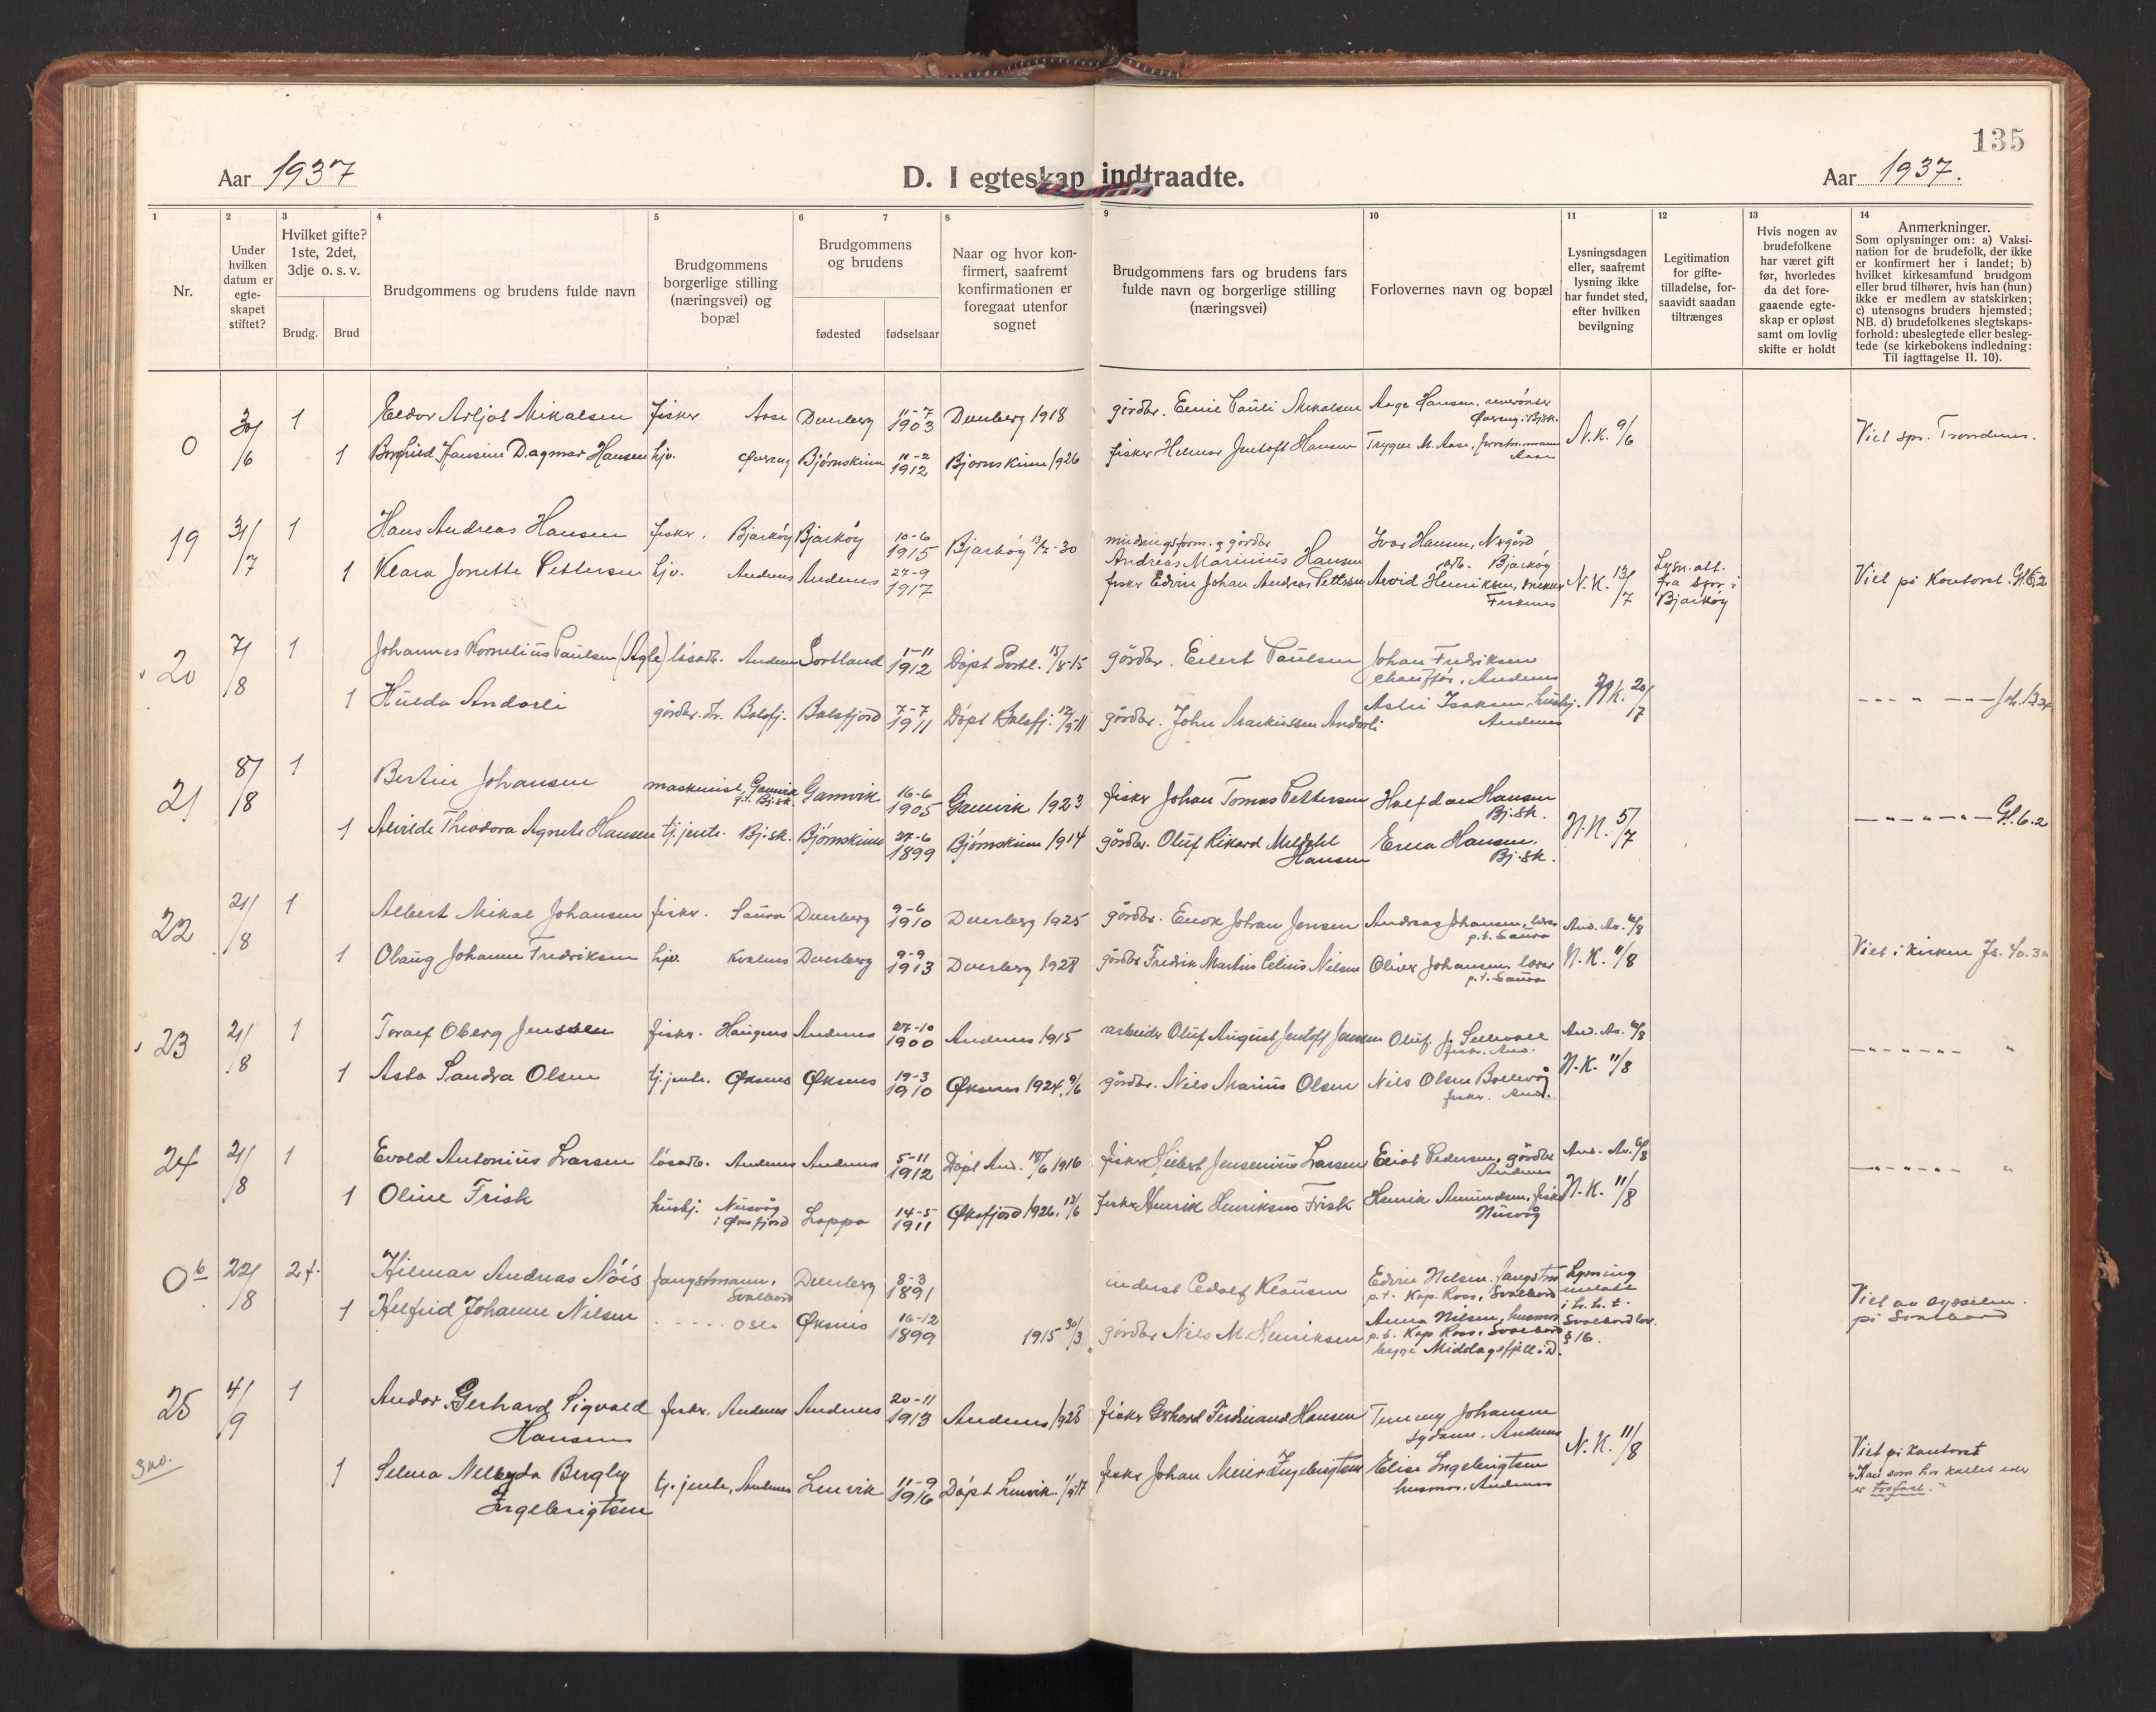 135
Aar 1937
D. I egteskap indtraadte.
Aar 1937.
1 2 3 4 5 6 7 8 9 10 11 12 13 14
Nr.
Under hvilken datum er egte- skapet stiftet?
Hvilket gifte? 1ste, 2det, 3dje o. s. v.
Brudg. Brud
Brudgommens og brudens fulde navn
Brudgommens borgerlige stilling (næringsvei) og bopæl
Brudgommens og brudens
fødested fødselsaar
Naar og hvor kon- firmert, saafremt konfirmationen er foregaat utenfor sognet
Brudgommens fars og brudens fars fulde navn og borgerlige stilling (næringsvei)
Forlovernes navn og bopæl
Lysningsdagen eller, saafremt lysning ikke har fundet sted, efter hvilken bevilgning
Legitimation for gifte- tilladelse, for- saavidt saadan tiltrænges
Hvis nogen av brudefolkene har været gift før, hvorledes da det fore- gaaende egte- skap er opløst samt om lovlig skifte er holdt
Anmerkninger.
Som oplysninger om: a) Vaksi- nation for de brudefolk, der ikke er konfirmert her i landet; b) hvilket kirkesamfund brudgom eller brud tilhører, hvis han (hun) ikke er medlem av statskirken; c) utensogns bruders hjemsted; NB. d) brudefolkenes slegtskaps- forhold: ubeslegtede eller besleg- tede (se kirkebokens indledning: Til iagttagelse II. 10).
0 30/6 1 Eldor Arljot Mikalsen fisker Aase Dverberg 11-7 1903 Dverberg 1918 gårdbr. Emil Pauli Mikalsen Aage Hansen
1 Borghild Hansine Dagmar Hansen hjv. Bjørnskinn 11-2 1912 Bjørnskinn 1926 fisker Helmar Jentoft Hansen Trygve M. Aase, Aase N.K. 9/6 Viet spr. Trondenes.
19 31/7 1 Hans Andreas Hansen fisker. Bjarkøy Bjarkøy 10-6 1915 Bjarkøy 13/7-30 gårdbr Andreas Marinius Hansen Ivar Hansen, Nergård Bjarkøy
1 Klara Jonette Pettersen hjv. Andenes Andenes 27-9 1917 fisker Edvin Johan Andreas Pettersen Arvid Henriksen, snekker Fiskenes N.K. 13/7 Lysn. att. fra spr. i Bjarkøy Viet på kontoret. Gl. 6.2
20 7/8 1 Johannes Kornelius Paulsen (Agle) løsarb. Andenes Sortland 1-11 1912 Døpt Sortl. 15/8-15 gårdbr. Eilert Paulsen Johan Fredriksen chauffør, Andenes
1 Hulda Andorli gårdbr. dr. Balsfj. Balsfjord 7-7 1911 Døpt Balsfj. gårdbr. John Markussen Andorli Astri Isaksen, husbj. Andenes N.K. 20/7
21 8/8 1 Bertin Johansen maskinist, Gamvik p.t. Bj.sk. Gamvik 16-6 1905 Gamvik 1923 fisker Johan Tomas Pettersen Halfdan Hansen Bj.sk.
1 Alvilde Theodora Agnete Hansen tj.jente. Bj.sk. Bjørnskinn 27-6 1899 Bjørnskinn 1914 gårdbr. Oluf Rikard Meldahl Hansen Erna Hansen. Bj.sk. N.N. 5/7 Gl. 6.2
22 21/8 1 Albert Mikal Johansen fisker. Saura Dverberg 9-6 1910 Dverberg 1925 gårdbr. Enok Johan Jensen Andreas Johansen, p.t. Saura And. Av. 6/8
1 Olaug Johanne Fredriksen hjv. Kvalnes Dverberg 9-9 1913 Dverberg 1928 gårdbr Fredrik Martin Celius Nilsen Oliver Johansen, p.t. Saura N.K. 11/8 Viet i kirken
23 21/8 1 Toralf Oberg Jenssen fisker. Haugnes Andenes 27-10 1900 Andenes 1915 arbeider Oluf August Jentoft Jensen Oluf J. Sellevoll fisker. And. And. Av. 6/8
1 Asta Sandra Olsen tj.jente. Øksnes Øksnes 19-3 1910 Øksnes 1924, 9/6 gårdbr. Nils Marius Olsen Nils Olsen Bollevåg fisker. And. N.K. 11/8
24 21/8 1 Evald Antonius Larsen løsarb. Andenes Andenes 5-11 1912 Døpt And. 18/6 1916 fisker Hilbert Jensenius Larsen Eliot Pedersen, gårdbr Andenes And. Av. 6/8
1 Oline Frisk husbj. Nusvåg i Øksfjord Loppa 14-5 1911 Øksfjord 1926, 13/6 fisker Henrik Henriksen Frisk Henrik Amundsen, fisker Nusvåg N.K. 11/8
0 b 22/8 2 f. Hilmar Andreas Nøis fangstmann, Svalbard Dverberg 8-3 1891 inderst Edolf Klausen Edvin Nilsen. fangstm p.t. Kap. Ross, Svalbard Lysning
1 Helfrid Johanne Nilsen Oslo Øksnes 16-12 1899 1915 30/3 gårdbr Nils M. Henriksen Anna Nilsen, husmor p.t. Kap Ross, Svalbard begge Middagsfjell i D. i h. h. t. Svalbardlov. § 16. Viet av sysselm. på Svalbard
25 4/9 1 Andor Gerhard Sigvald Hansen fisker. Andenes Andenes 20-11 1913 Andenes 1928 fisker Gerhard Ferdinand Hansen Tommy Johansen Andenes
1 Selma Nelly da Bergly Ingebrigtsen tj.jente, Andenes Lenvik 11-9 1916 Døpt Lenvik. fisker Johan Meier Ingebrigtsen Elise Ingebrigtsen husmor. Andenes N.K. 11/8 Viet på kontoret „Han som har kallet eder er trofast."